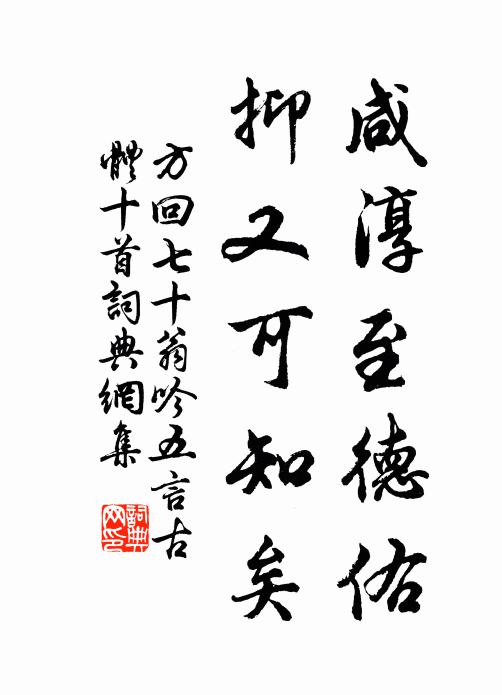 咸淳至德佑
抑又可知矣
方回七十翁吟五言古
體十首詞典網集
詞典网印